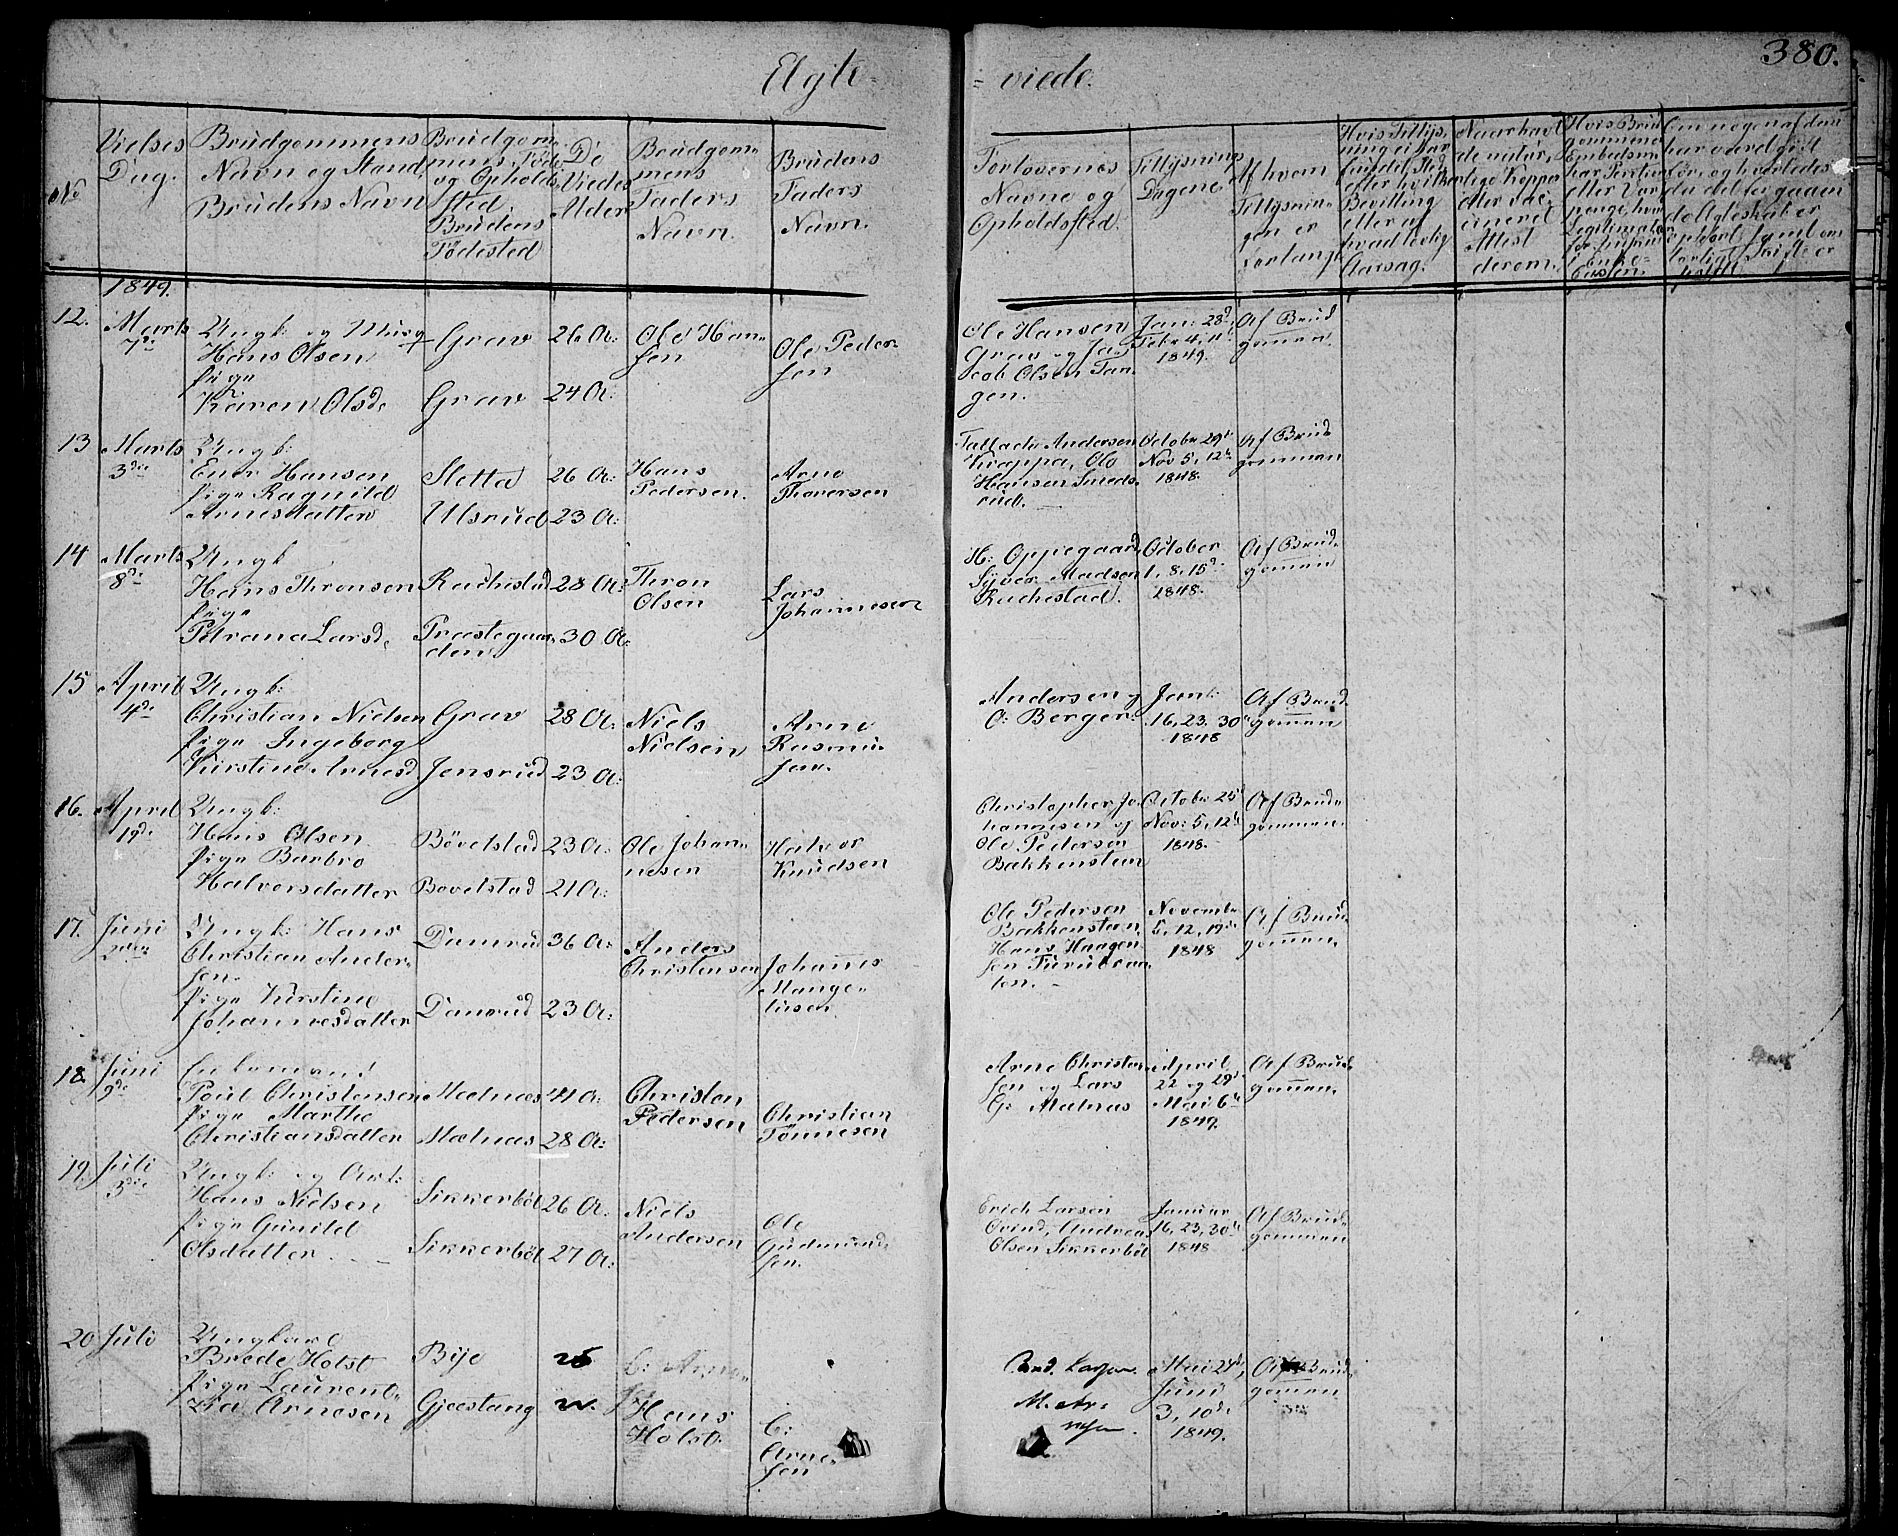 380.
Ægte- = viede.
No
Vielses Dag.
Brudgommens Navn og Stand, Brudens Navn
Brudgommens Føde og Opholds Sted. Brudens Fødested
De Viedes Alder
Brudgommens Faders Navn.
Brudens Faders Navn.
Forlovernes Navne og Opholdssted.
Tillysnings Dagene
Af hvem Tillysningen er forlangt
Hvis Tillysning ei har fundet Sted efter hvilken Bevilling eller af hvad lovlig Aarsag.
Naar havt de naturlige Kopper eller vaccineret Attest derom.
1849.
12.
Marts 7de
Ungk: og
Hans Olsen
Pige
Karen Olsd.
Grav
Grav
26 A:
24 A:
Ole Hansen
Ole Pedersen
Ole Hansen
Grav og Jacob Olsen Tangen.
Jan: 28d
Febr 4, 11t
1849.
Af Brudgommen
13
Marts 3die
Ungk:
Ener Hansen
Pige Ragnild
Arnesdatter
Sletta
Ulsrud
26 A:
23 A:
Hans
Pedersen.
Arne
Thoversen
Tallach Andersen
Krappa, Ole
Hansen Smedsrud.
October 29d
Nov 5, 12t
1848.
Af Brudgommen
14
Marts 8de
Ungk
Hans Thronsen
Pige
Petrana Larsd.
Ruchestad
Præstegaarden
28 A:
30 A:
Thron
Olsen
Lars
Johannesen
H: Oppegaard
Syver Madsen
Ruchestad.
October
1, 8, 15d
1848.
Af Brudgommen
15
April 4de
Ungk:
Christian Nielsen
Pige Ingeborg
Kirstine Arnesd.
Grav
Jensrud
28 A:
23 A:
Niels
Nielsen
Arne
Rasmusen.
Andersen og
O: Berger.
Jan:
16, 23, 30t
1848
Af Brudgommen
16.
April 19de
Ungk:
Hans Olsen
Pige Barbro
Halversdatter
Bövelstad
Bovelstad
23 A:
21 A:
Ole Johannesen
Halvor
Knudsen
Christopher Johannesen og
Ole Pedersen
Bakkensteen
October 25d
Nov: 5, 12t
1848.
Af Brudgommen.
17.
Juni 2den
Ungk: Hans
Christian Andersen.
Pige Kirstine
Johannesdatter
Damrud
Damrud
36 A:
23 A:
Anders
Christensen
Johannes
Mangelusen
Ole Pedersen
Bakkensteen,
Hans Haagensen
November
5, 12, 19de
1848
Af Brudgommen.
18.
Juni 9de
Enkemand
Poul Christensen
Pige Marthe
Christiansdatter
Mælnæs
Mælnæs
41 A:
28 A:
Christen
Pedersen
Christian
Tønnesen
Arne Christensen og Lars
G: Mælnæs
April
22 og 29d
Mai 6t
1849.
Af Brudgommen.
19.
Juli 5te
Ungk: og Art:
Hans Nielsen
Pige Gunild
Olsdatter.
Sikkerböl
Sikkerböl
26 A:
27 A:
Niels
Andersen
Ole
Gudmundsen.
Erich Larsen
Ovind, Andreas
Olsen Sikkerböl
Januar
16, 23, 30t
1848
Af Brudgommen
20
Juli
Ungkarl
Brede Holst
Pige Laurentzia Arnesen
Bije
Gjæstang
Hans
Holst.
C:
Arnesen
Mai 24de,
Juni
3, 10de
1849.
Af Brudgommen